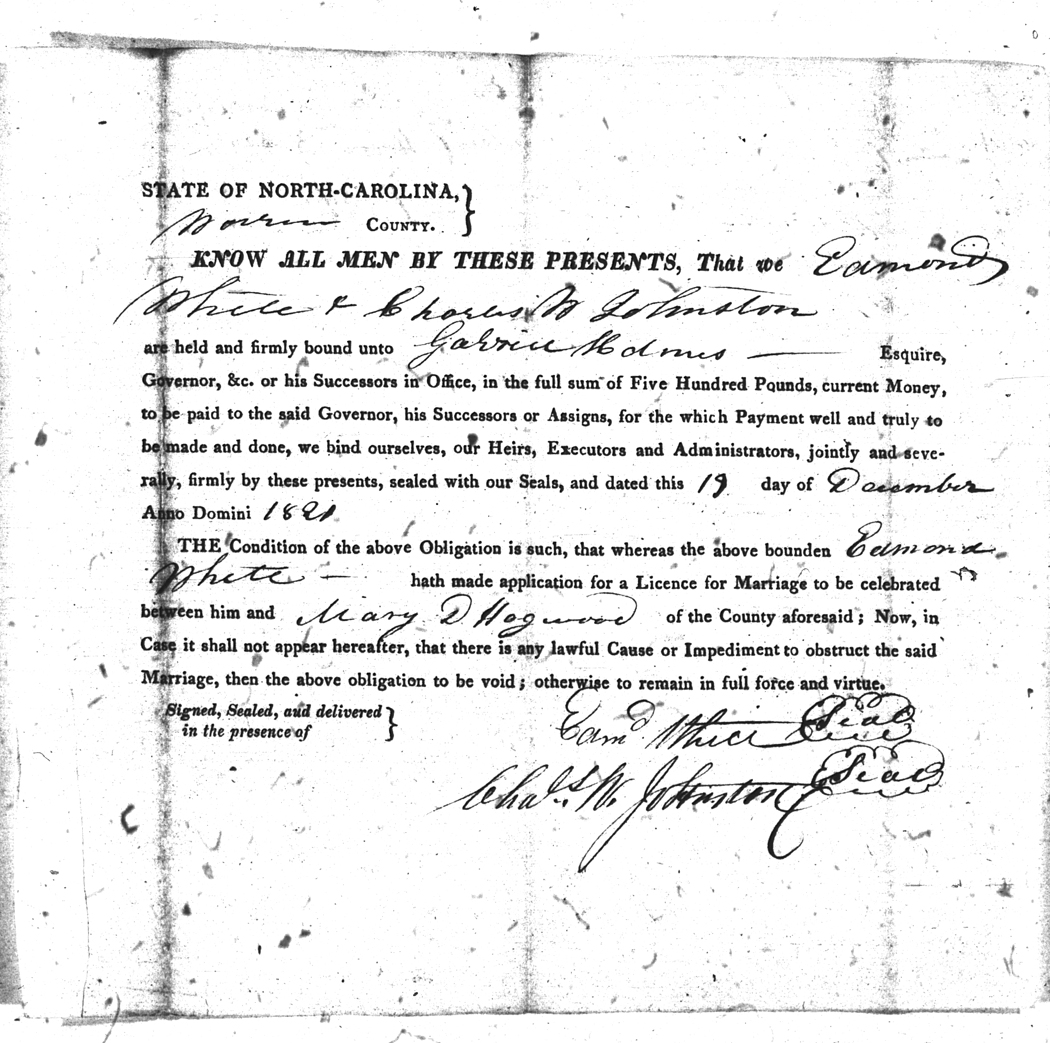 STATE OF NORTH-CAROLINA, }
Warren COUNTY. }
KNOW ALL MEN BY THESE PRESENTS, That we Edmond
White & Charles W Johnston
are held and firmly bound unto Gabriel Holmes — Esquire,
Governor, &c. or his Successors in Office, in the full sum of Five Hundred Pounds, current Money,
to be paid to the said Governor, his Successors or Assigns, for the which Payment well and truly to
be made and done, we bind ourselves, our Heirs, Executors and Administrators, jointly and seve-
rally, firmly by these presents, sealed with our Seals, and dated this 19 day of December
Anno Domini 1821
THE Condition of the above Obligation is such, that whereas the above bounden Edmond
White — hath made application for a Licence for Marriage to be celebrated
between him and Mary D Hagwood of the County aforesaid; Now, in
Case it shall not appear hereafter, that there is any lawful Cause or Impediment to obstruct the said
Marriage, then the above obligation to be void; otherwise to remain in full force and virtue.
Signed, Sealed, and delivered }
in the presence of }
Edmd White Seal
Chas. W. Johnston Seal